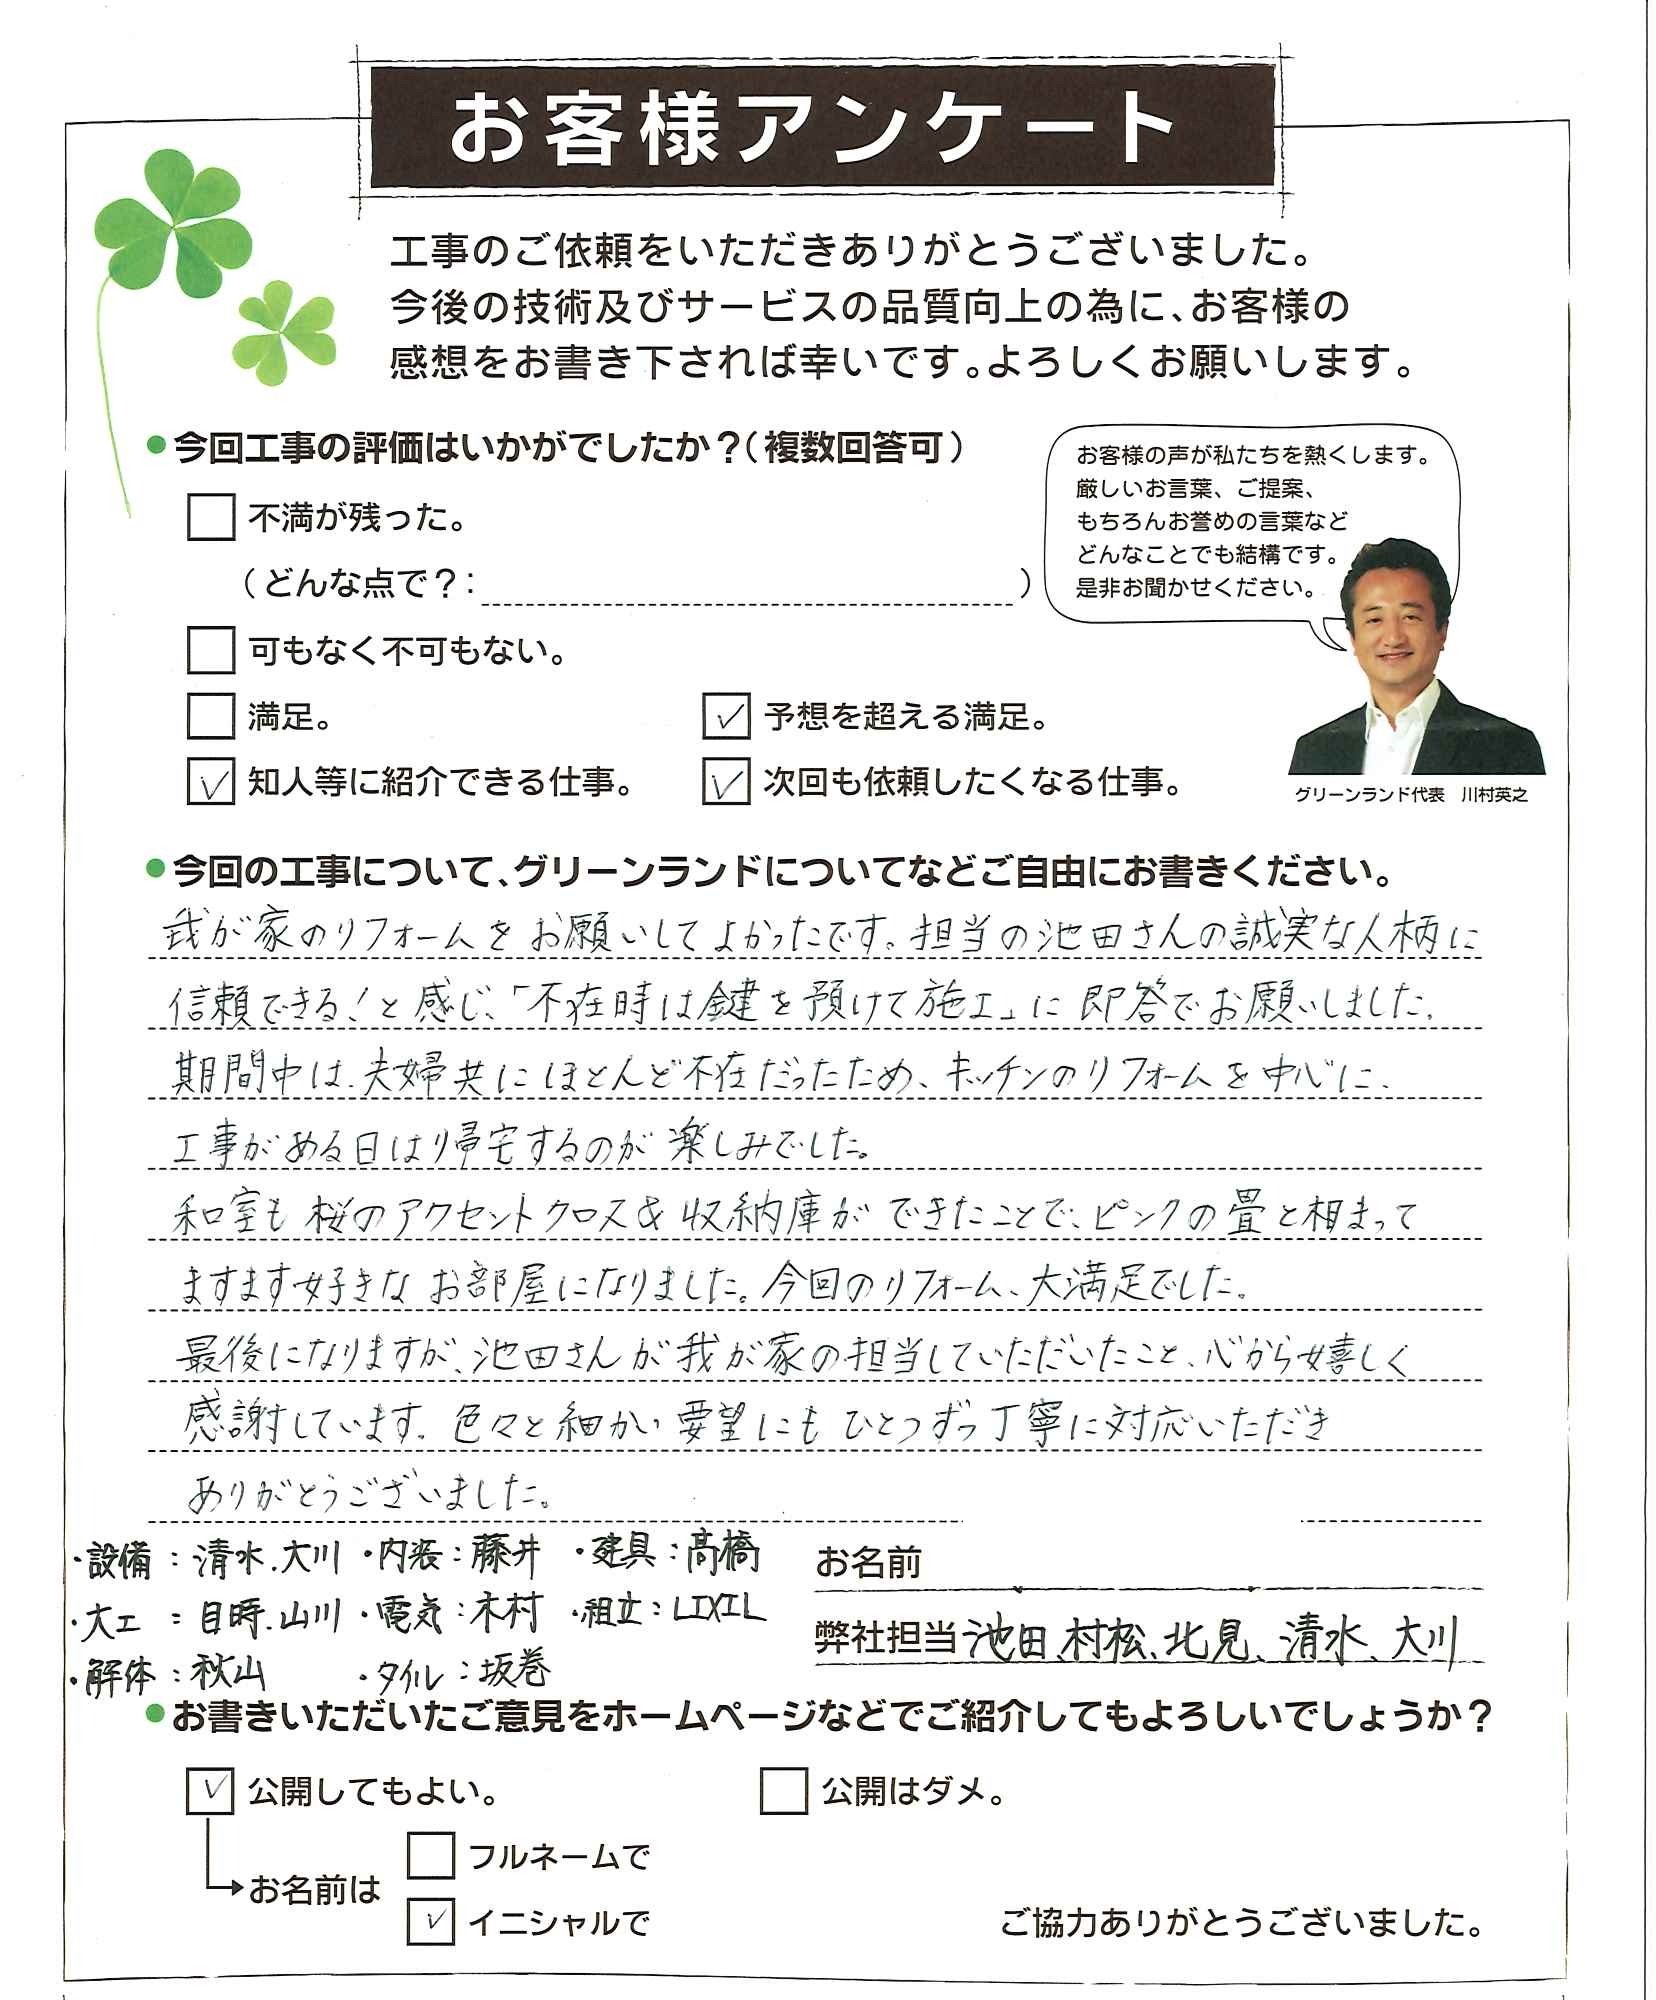 お客様アンケート
工事のご依頼をいただきありがとうございました。
今後の技術及びサービスの品質向上の為に、お客様の
感想をお書き下されば幸いです。よろしくお願いします。
●今回工事の評価はいかがでしたか？（複数回答可）
お客様の声が私たちを熱くします。
厳しいお言葉、ご提案、
もちろんお誉めの言葉など
どんなことでも結構です。
是非お聞かせください。
グリーンランド代表　川村英之
不満が残った。
（どんな点で？：　）
可もなく不可もない。
満足。
✓ 予想を超える満足。
✓ 知人等に紹介できる仕事。
✓ 次回も依頼したくなる仕事。
●今回の工事について、グリーンランドについてなどご自由にお書きください。
我が家のリフォームをお願いしてよかったです。担当の池田さんの誠実な人柄に
信頼できる！と感じ、「不在時は鍵を預けて施工」に即答でお願いしました。
期間中は、夫婦共にほとんど不在だったため、キッチンのリフォームを中心に、
工事がある日はり帰宅するのが楽しみでした。
和室も桜のアクセントクロス&収納庫ができたことで、ピンクの畳と相まって
ますます好きなお部屋になりました。今回のリフォーム、大満足でした。
最後になりますが、池田さんが我が家の担当していただいたこと、心から嬉しく
感謝しています。色々と細かい要望にもひとつずつ丁寧に対応いただき
ありがとうございました。
・設備：清水、大川 ・内装：藤井 ・建具：髙橋
・大工：目時、山川 ・電気：木村 ・組立：LIXIL
・解体：秋山 ・タイル：坂巻
お名前
弊社担当 池田、村松、北見、清水、大川
●お書きいただいたご意見をホームページなどでご紹介してもよろしいでしょうか？
✓ 公開してもよい。
公開はダメ。
お名前は
フルネームで
✓ イニシャルで
ご協力ありがとうございました。